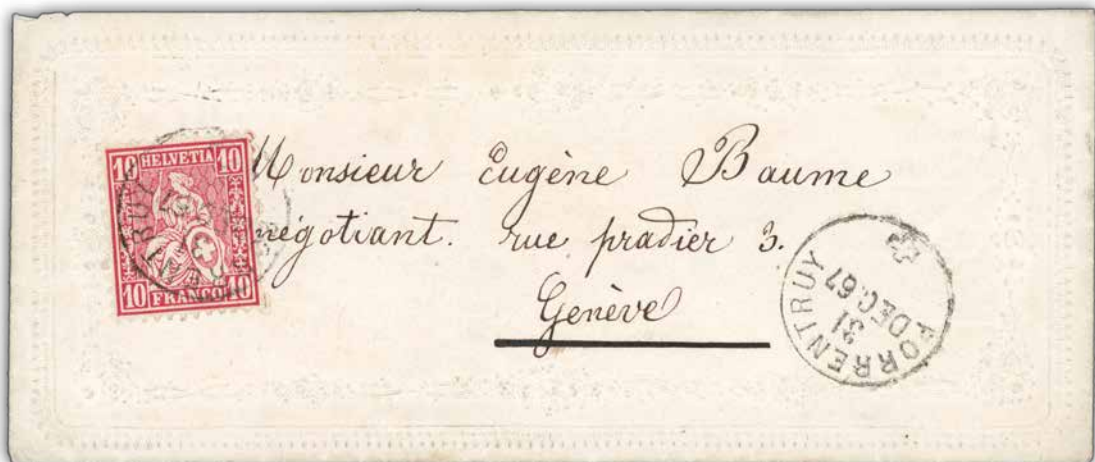 10 HELVETIA 10
10 FRANCO 10
Monsieur Eugène Baume
négotiant. rue pradier 3.
Genève
PORRENTRUY
31
DEC. 67